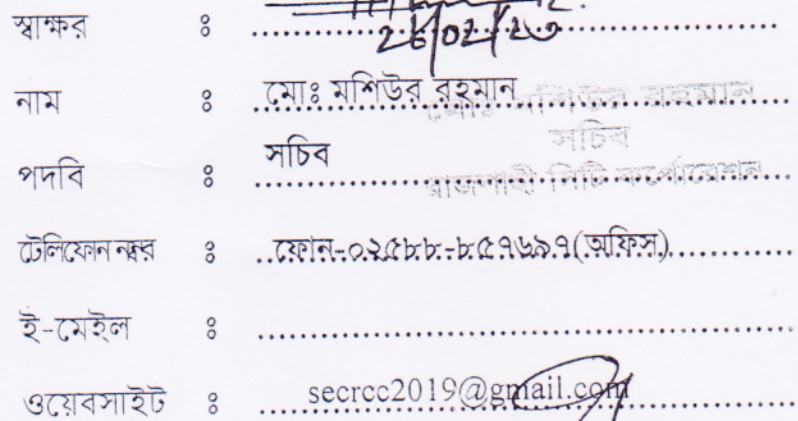 স্বাক্ষর ঃ ..............................
নাম ঃ মোঃ মশিউর রহমান
মোঃ মশিউর রহমান
পদবি ঃ সচিব
সচিব
রাজশাহী সিটি কর্পোরেশন
টেলিফোন নম্বর ঃ ..ফোন-০২৫৮৮-৮৫৭৬৯৭(অফিস)..............
ই-মেইল ঃ ..............................
ওয়েবসাইট ঃ secrcc2019@gmail.com